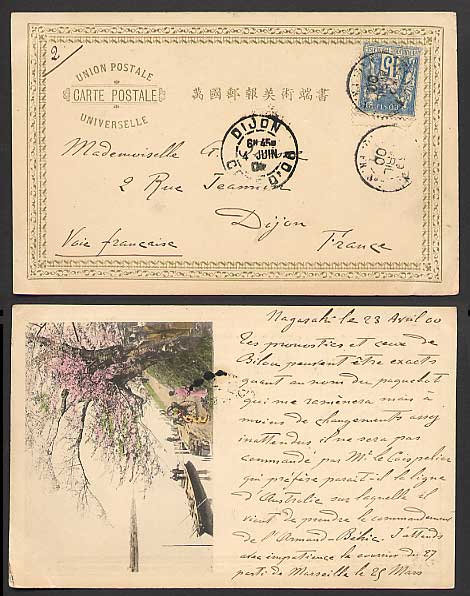 2)
UNION POSTALE
CARTE POSTALE
UNIVERSELLE
萬國郵報美術端書
15
DIJON
4 JUIN
Mademoiselle G
2 Rue Jeannin
Dijon
Voie française France
Nagasaki le 23 Avril 00
Les pronostics et ceux de
Bilou peuvent être exacts
quant au nom du paquebot
qui me ramènera mais à
moins de changements assez
inattendus, il ne sera pas
commandé par Mr le Coispelier
qui préfère paraît-il la ligne
d'Australie sur laquelle il
vient de prendre le commandement
de l'Armand-Béhic. J'attends
avec impatience le courrier du 27
parti de Marseille le 25 Mars